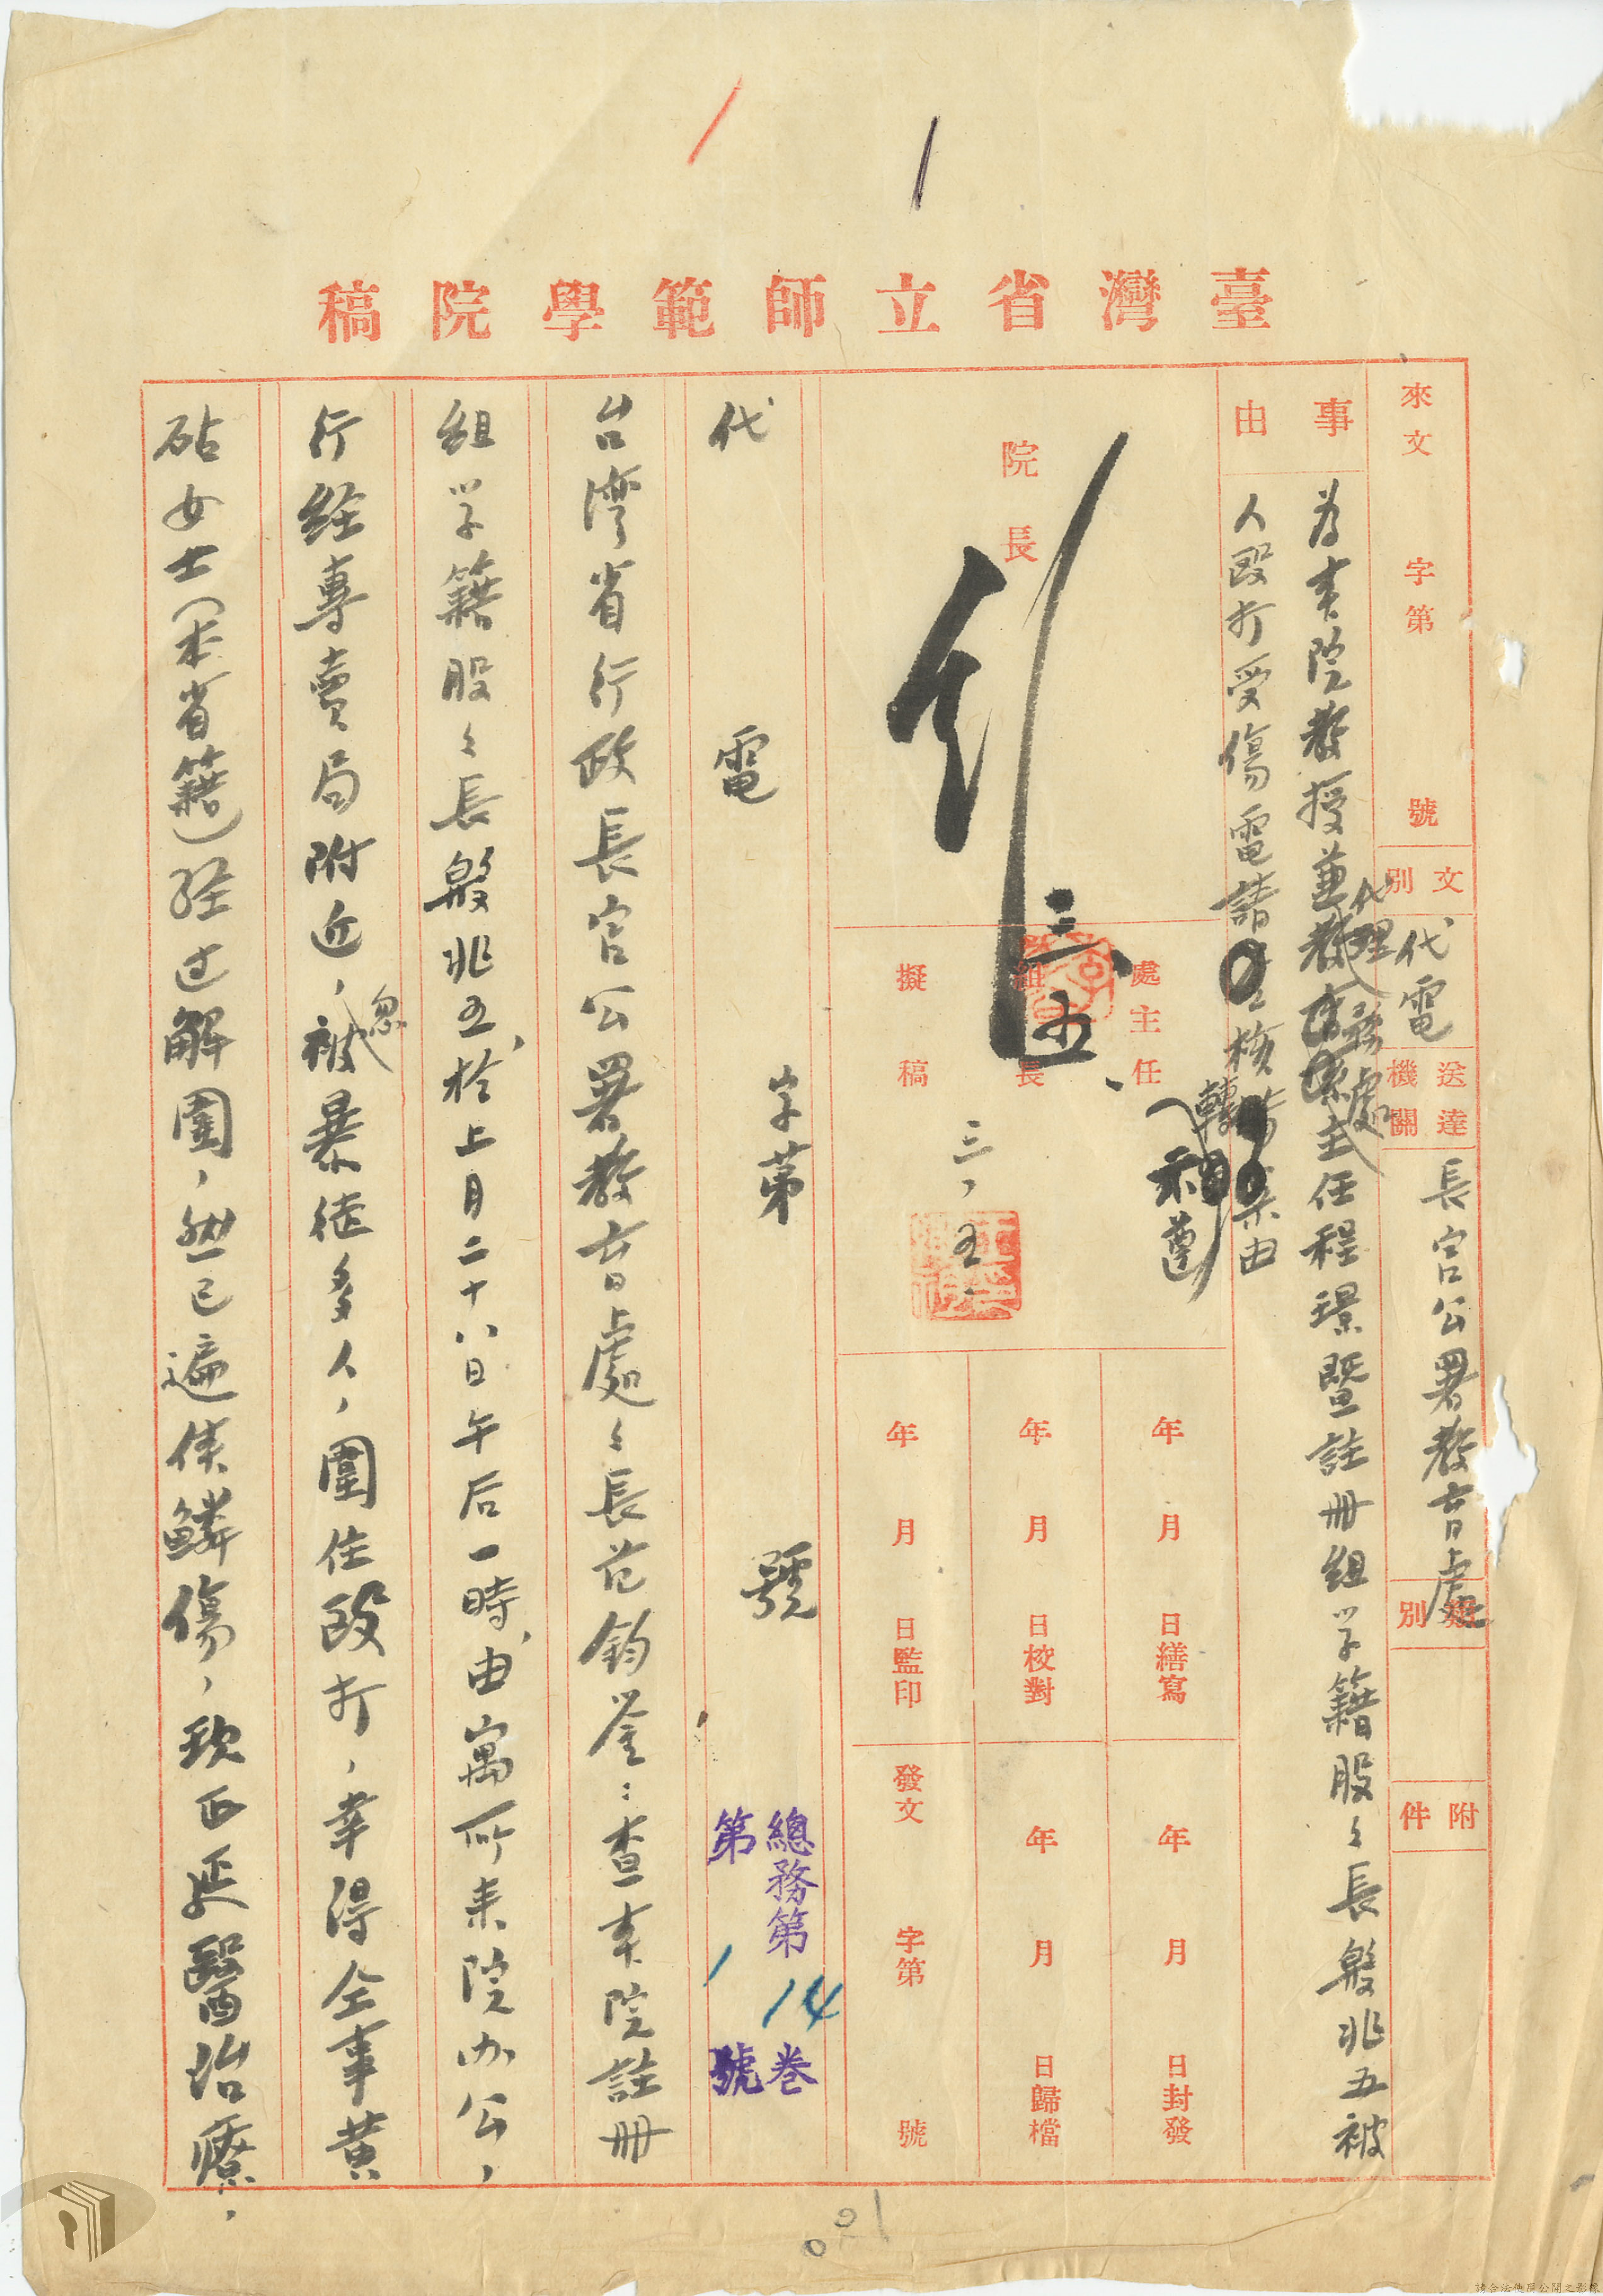 臺灣省立師範學院稿
來文 字第 號
文別 代電
送達機關 長官公署教育處
類別
附件
事由
為本院教授兼代理教務處主任程璟暨註冊組学籍股々長殷兆五被
人毆打受傷電請核轉由
院長
三、五、
處主任
組長
擬稿
三、五、
年 月 日繕寫
年 月 日校對
年 月 日監印
年 月 日封發
年 月 日歸檔
發文 字第 號
代 電 字第 號
總務第14卷
第1號
台湾省行政長官公署教育處々長范鈞鉴：查本院註冊
組学籍股々長殷兆五、於上月二十八日午后一時、由寓所来院办公，
行経專賣局附近，忽被暴徒多人，圍住毆打，幸得仝事黄
砧女士（本省籍）経过解圍，然已遍体鱗傷，現正延醫治療，
請合法使用公開之影像